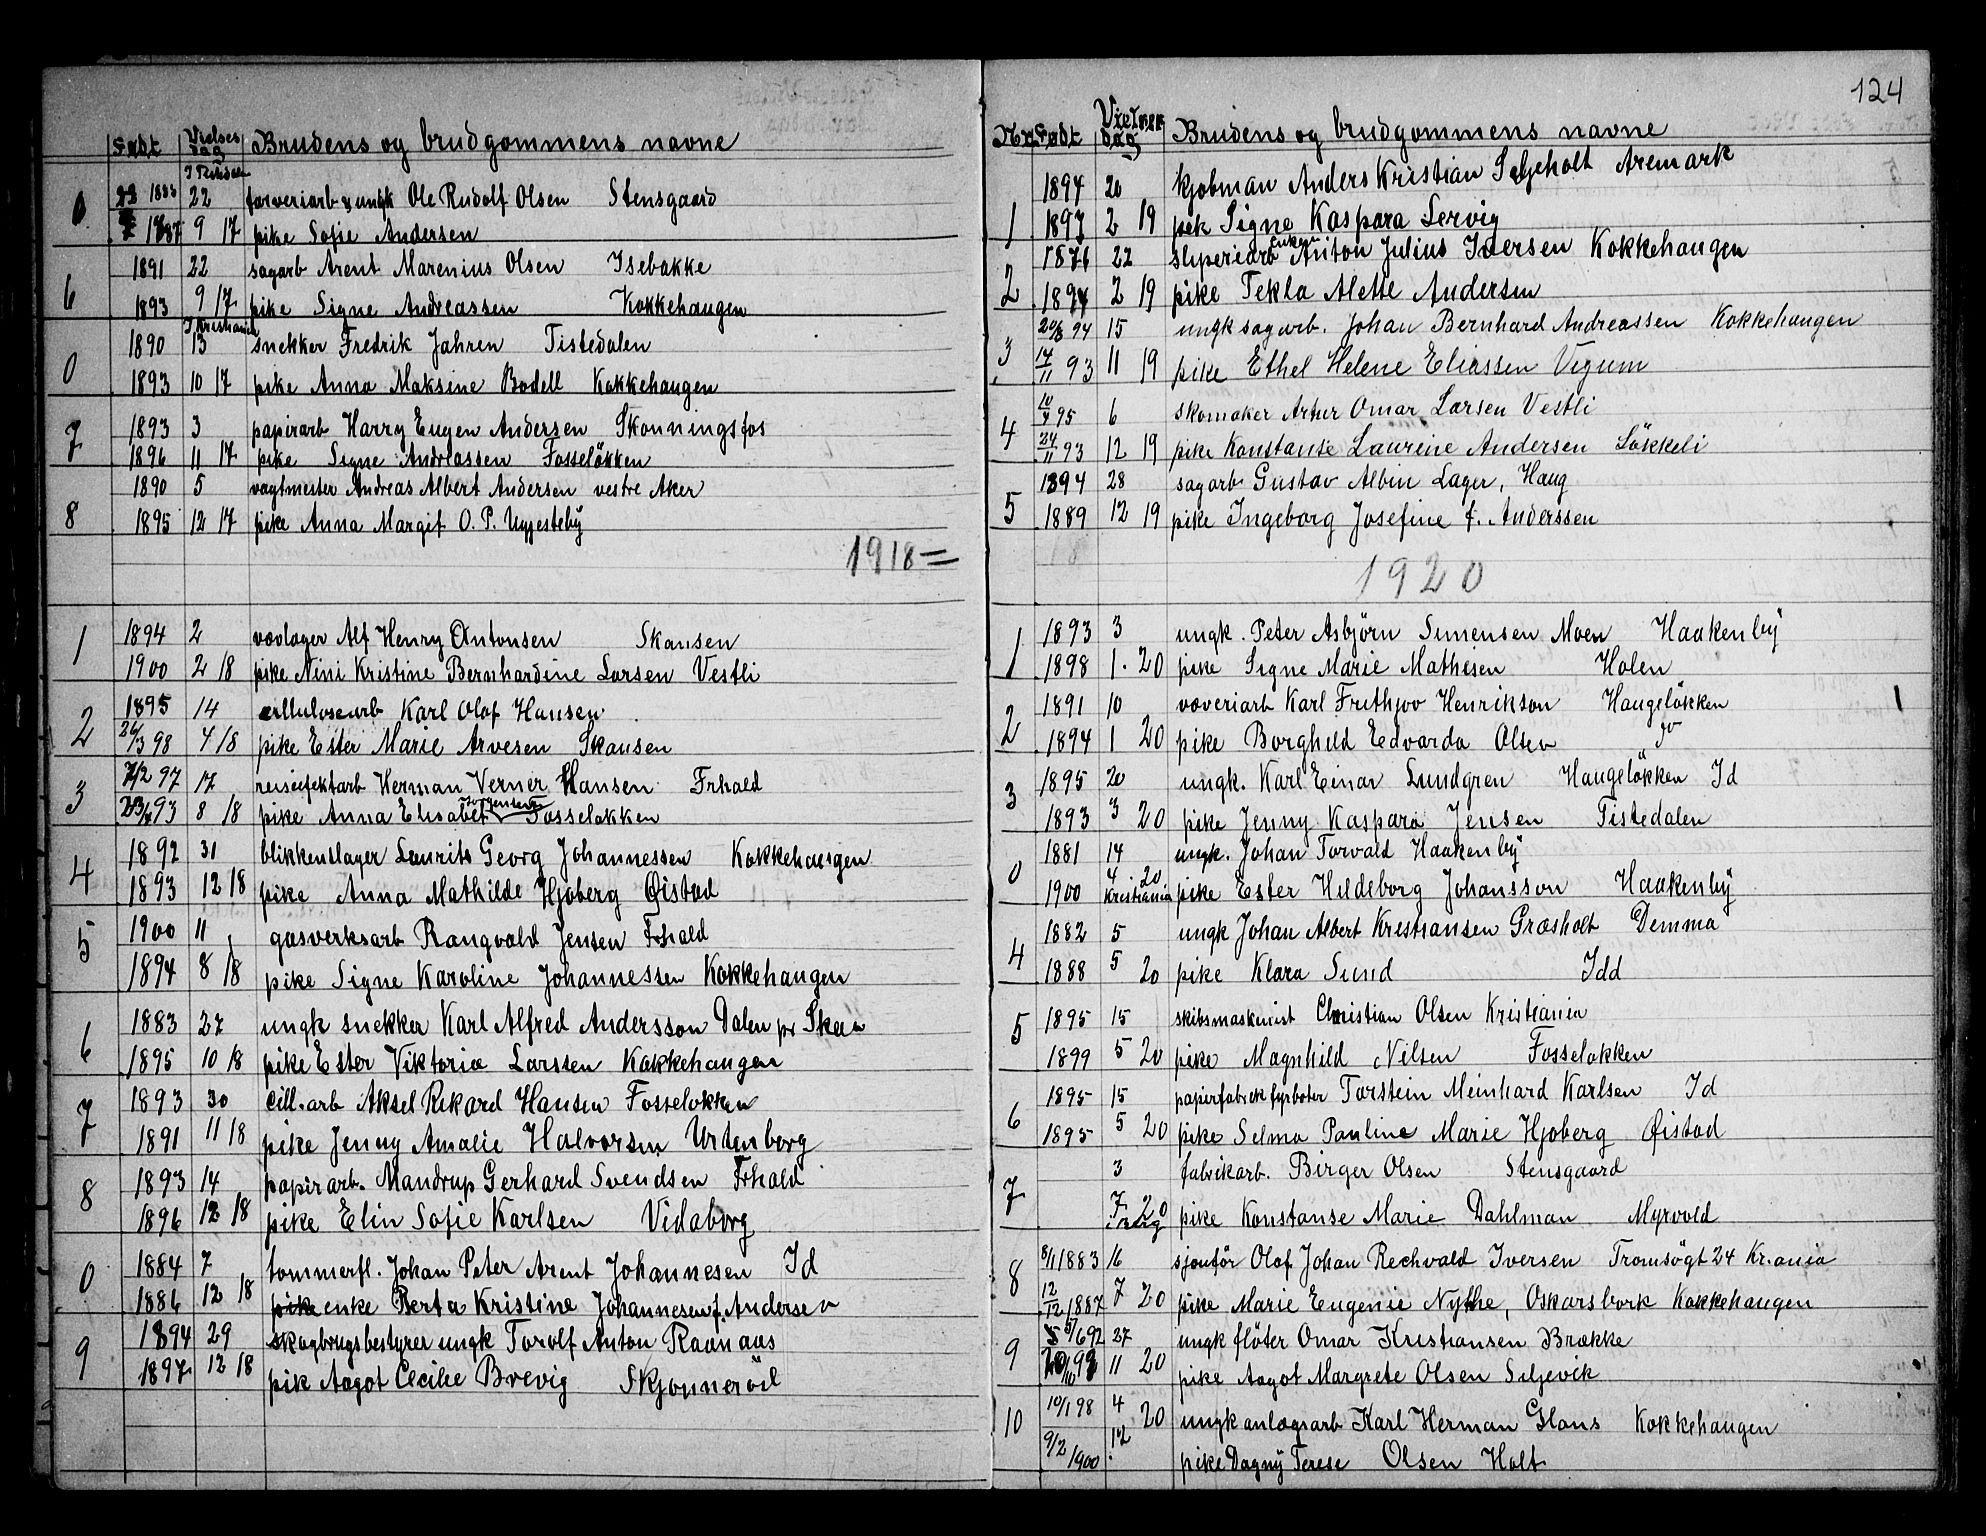 Født Vielses dag Brudens og brudgommens navne
22 1883 22 farveriarb & ungk Ole Rudolf Olsen Stensgaard
0 1887 9 17 pike Sofie Andersen
1891 22 sagarb Arent Marenius Olsen Isebakke
6 1893 9 17 pike Signe Andreassen Kokkehaugen
I Kristiania
1890 13 snekker Fredrik Jahren Tistedalen
0 1893 10 17 pike Anna Maksine Bodell Kokkehaugen
1893 3 papirarb Harry Eugen Andersen Skonningsfos
7 1896 11 17 pike Signe Andreassen Fosseløkken
1890 5 vagtmester Andreas Albert Andersen vestre Aker
8 1895 12 17 pike Anna Margit O. P. Uggesteby
1918 =
1 1894 2 Alf Henry Antonsen Skansen
1900 2 18 pike Nini Kristine Bernhardine Larsen Vestli
1895 14 cellulosearb Karl Olaf Hansen
2 26/3 98 4 18 pike Ester Marie Arvesen Skansen
7/2 97 17 Herman Verner Hansen Frhald
3 93 8 18 pike Anna Elisabet Jørgensen Fosseløkken
1892 31 blikkenslager Laurits Georg Johannessen Kokkehaugen
4 1893 12 18 pike Anna Mathilde Hjøberg Øistad
1900 11 gasverksarb Rangvald Jensen Frhald
5 1894 8 18 pike Signe Karoline Johannessen Kokkehaugen
1883 27 ungk snekker Karl Alfred Andersson Dalen pr Skeen
6 1895 10 18 pike Ester Viktoria Larssen Kokkehaugen
1893 30 cill.arb Aksel Rikard Hansen Fosseløkken
7 1891 11 18 pike Jenny Amalie Halvorsen Urtenborg
1893 14 papirarb. Mandrup Gerhard Svendsen Frhald
8 1896 12 18 pike Elin Sofie Karlsen Vidaborg
1884 7 tømmerfl. Johan Peter Arent Johannesen Id
0 1886 12 18 pike enke Berta Kristine Johannesen f. Andersen
1894 29 skogbrugsbestyrer ungk Torolf Anton Raanaas
9 1897 12 18 pik Aagot Cecilie Brevig Skjønnerøl
124
Nr. Født Vielses dag Brudens og brudgommens navne
1894 20 Kjøbman Anders Kristian Seljeholt Aremark
1 1897 2 19 pik Signe Kaspara Servig
1876 22 sliperiarb enkem Anton Julius Iversen Kokkehaugen
2 1894 2 19 pike Tekla Alette Andersen
20/8 94 15 ungk sagarb. Johan Bernhard Andreassen Kokkehaugen
3 17/11 93 11 19 pike Ethel Helene Eliassen Vigum
10/4 95 6 skomaker Artur Omar Larsen Vestli
4 24/11 93 12 19 pike Konstanse Laurine Andersen Løkkeli
1894 28 sagarb Gustav Albin Lager, Haug
5 1889 12 19 pike Ingeborg Josefine f. Anderssen
1920
1893 3 ungk. Peter Asbjörn Simensen Moen Haakenby
1 1898 1. 20 pike Signe Marie Mathisen Holen
1891 10 væveriarb Karl Frithjov Henrikson Haugeløkken
2 1894 1 20 pike Borghild Edvarda Olsen do
1895 20 ungk. Karl Einar Lundgren Haugeløkken Id
3 1893 3 20 pike Jenny Kaspara Jensen Tistedalen
1881 14 ungk. Johan Torvald Haakenby
0 1900 4 20 Kristiania pike Ester Hildeborg Johansson Haakenby
1882 5 ungk Johan Albert Kristiansen Græsholt Demma
4 1888 5 20 pike Klara Sund Idd
1895 15 skibsmaskinist Christian Olsen Kristiania
5 1899 5 20 pike Magnhild Nilsen Fosseløkken
1895 15 papirfabrikfyrbøter Torstein Meinhard Karlsen Id
6 1895 5 20 pike Selma Pauline Marie Hjøberg Øistad
3 fabrikarb. Birger Olsen Stensgaard
7 7 20 pike Konstanse Marie Dahlman Myrvold
8/1 1883 16 sjouför Olaf Johan Rechvald Iversen Tromsøgt 24 Kr.ania
8 12/12 1887 7 20 pike Marie Eugenie Nythe, Oskarsbork Kokkehaugen
5/6 92 27 ungk fløter Omar Kristiansen Brække
9 11 20 pike Aagot Margrete Olsen Siljevik
10/1 98 4
10 20 ungk anlægsarb Karl Herman Glans Kokkehaugen
9/2 1900 12 pike Dagny Terese Olsen Holt